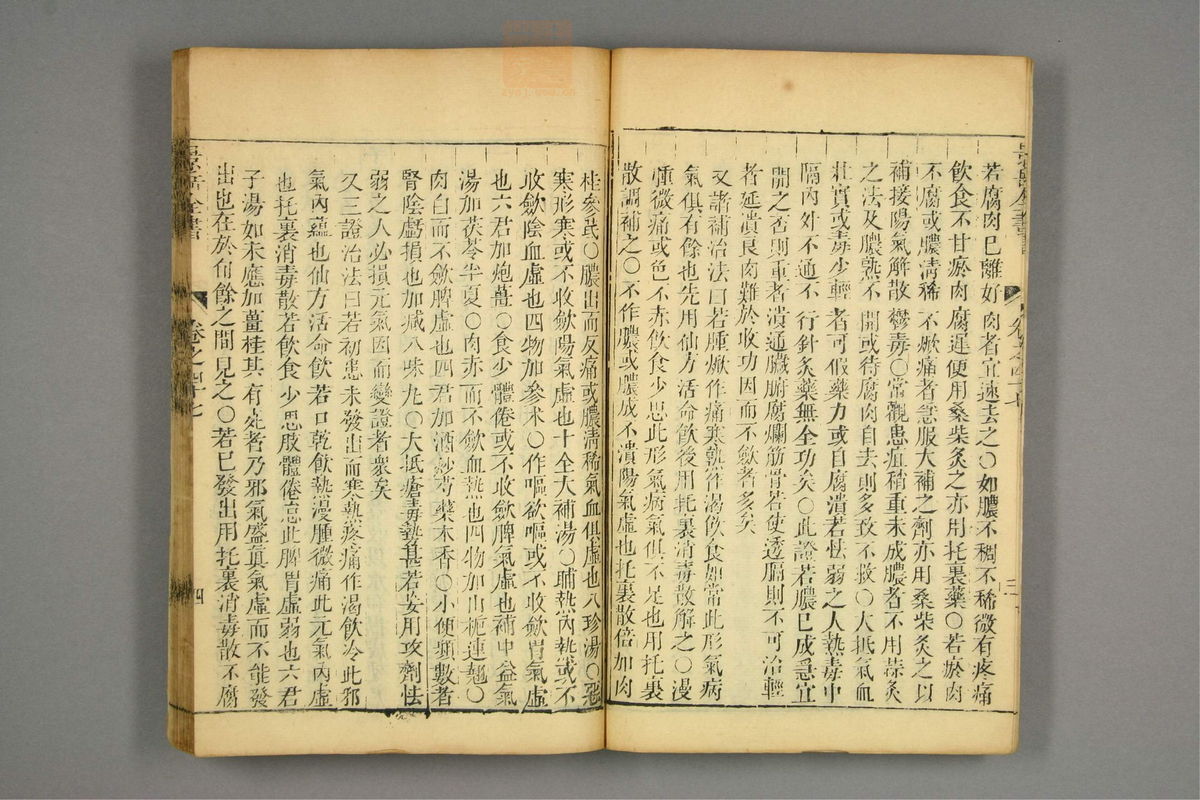 若腐肉已離好肉者宜速去之〇如膿不稠不稀微有疼痛
飲食不甘瘀肉腐遲便用桑柴灸之亦用托裏藥〇若瘀肉
不腐或膿清稀不焮痛者急服大補之劑亦用桑柴灸之以
補接陽氣解散鬱毒〇常觀患疽稍重未成膿者不用蒜灸
之法及膿熟不開或待腐肉自去則多致不救〇大抵氣血
壯實或毒少輕者可假藥力或自腐潰若怯弱之人熱毒中
隔內外不通不行針灸藥無全功矣〇此證若膿已成急宜
開之否則重者潰通臟腑腐爛筋骨若使透膈則不可治輕
者延潰良肉難於收功因而不斂者多矣
又諸補治法曰若腫焮作痛寒熱作渴飲食如常此形氣病
氣俱有餘也先用仙方活命飲後用托裏消毒散解之〇漫
腫微痛或色不赤飲食少思此形氣病氣俱不足也用托裏
散調補之〇不作膿或膿成不潰陽氣虛也托裏散倍加肉
三
桂參芪〇膿出而反痛或膿清稀氣血俱虛也八珍湯〇惡
寒形寒或不收斂陽氣虛也十全大補湯〇晡熱內熱或不
收斂陰血虛也四物加參朮〇作嘔欲嘔或不收斂胃氣虛
也六君加炮薑〇食少體倦或不收斂脾氣虛也補中益氣
湯加茯苓半夏〇肉赤而不斂血熱也四物加山梔連翹〇
肉白而不斂脾虛也四君加酒炒芍藥木香〇小便頻數者
腎陰虧損也加減八味丸〇大抵瘡毒勢甚若妄用攻劑怯
弱之人必損元氣因而變證者衆矣
又三證治法曰若初患未發出而寒熱疼痛作渴飲冷此邪
氣內蘊也仙方活命飲若口乾飲熱漫腫微痛此元氣內虛
也托裏消毒散若飲食少思肢體倦怠此脾胃虛弱也六君
子湯如未應加薑桂其有死者乃邪氣盛眞氣虛而不能發
出也在於旬餘之間見之〇若已發出用托裏消毒散不腐
卷之四十七
四